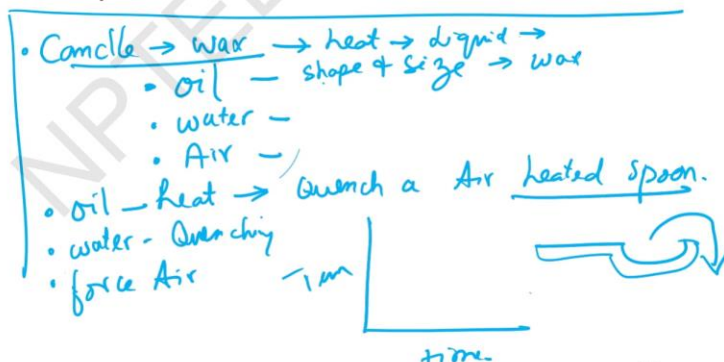 • Candle → wax → heat → Liquid →
• oil — shape & size → wax
• water —
• Air —
• oil — heat → Quench a Air heated spoon.
• water - Quenching
• force Air
time.
NPTEL